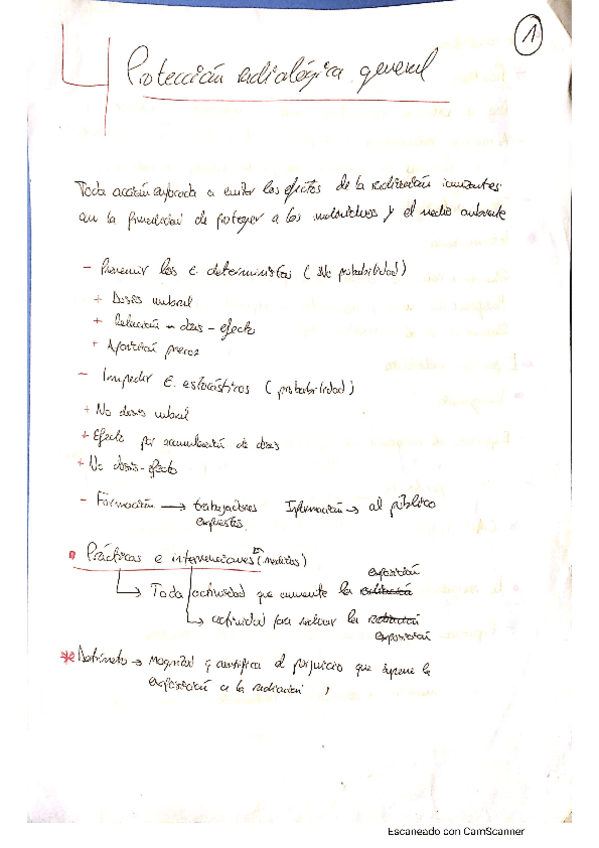 1
4 Protección radiológica general
Toda acción enfocada a evitar los efectos de la radiación ionizantes
con la finalidad de proteger a los individuos y el medio ambiente
- Prevenir los E. deterministas (No probabilidad)
+ Dosis umbral
+ Relación - dosis - efecto
+ Aparición precoz
- Impedir E. estocásticos (probabilidad)
+ No dosis umbral
+ Efecto por acumulación de dosis
+ No dosis-efecto
- Formación → trabajadores Información → al público
expuestos.
Prácticas e intervenciones (medidas)
exposición
→ Toda actividad que aumente la
→ actividad para reducir la
exposición
* Detrimento → Magnitud q cuantifica el perjuicio que supone la
exposición a la radiación
Escaneado con CamScanner